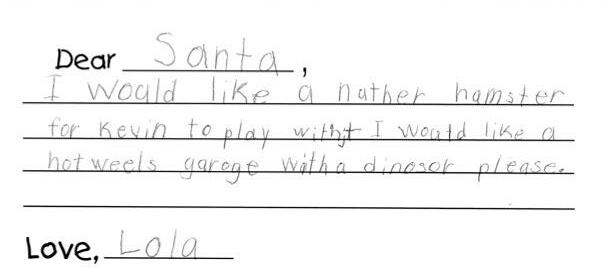 Dear Santa,
I would like a nather hamster
for Kevin to play witht I would like a
hot weels garoge with a dinosor please.
Love, Lola